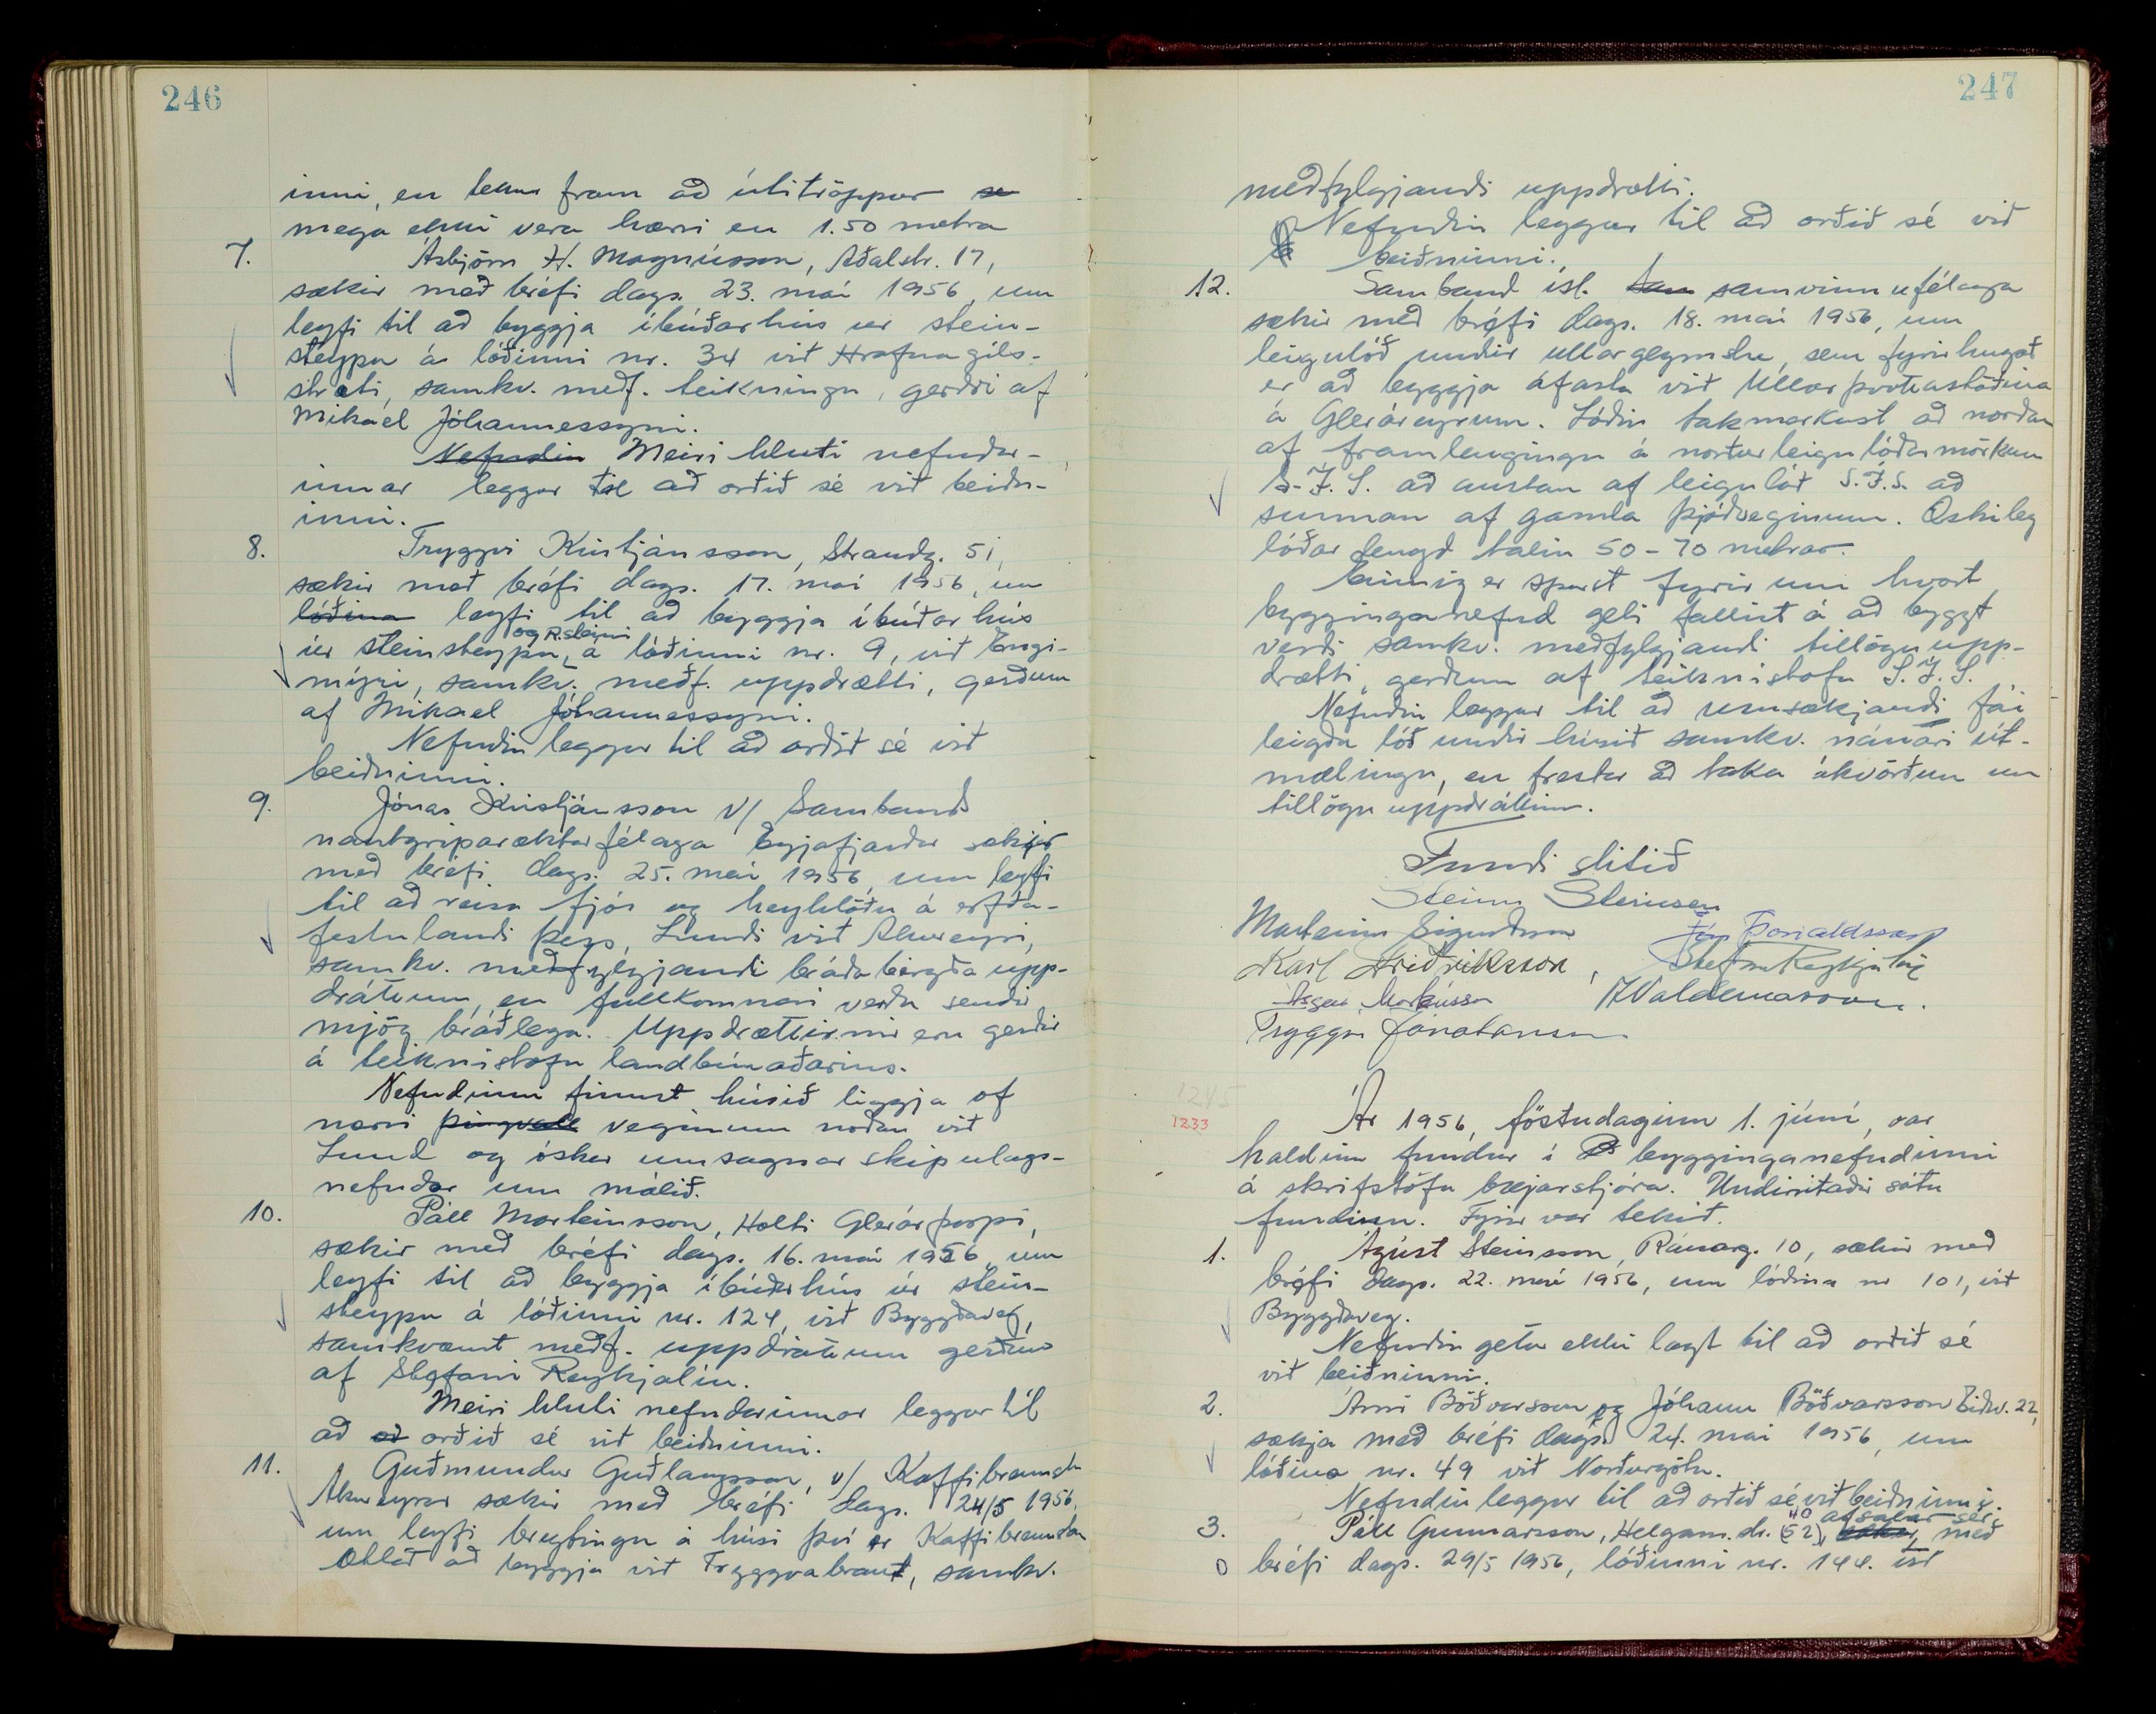 246
inni, en tekur fram að útitröppur se
mega ekki vera hærri en 1.50 metra
7. Ásbjörn H. Magnússon, Aðalstr. 17,
sækir með bréfi dags. 23. maí 1956, um
leyfi til að byggja íbúðarhús úr stein-
steypu á lóðinni nr. 34 við Hrafnagils-
stræti, samkv. meðf. teikningu, gerðri af
Mikael Jóhannessyni.
Nefndin Meiri hluti nefndar-
innar leggur til að orðið sé við beiðn-
inni.
8. Tryggvi Kristjánsson, Strandg. 51,
sækir með bréfi dags. 17. maí 1956, um
lóðina leyfi til að byggja íbúðar hús
úr steinsteypu og R.steini á lóðinni nr. 9, við Engi-
mýri, samkv. meðf. uppdrætti, gerðum
af Mikael Jóhannessyni.
Nefndin leggur til að orðið sé við
beiðninni.
9. Jónas Kristjánsson v/ Sambands
nautgriparæktarfélaga Eyjafjarðar sækir
með bréfi dags. 25. maí 1956 um leyfi
til að reisa fjós og heyhlöðu á erfða-
festulandi þess, Lundi við Akureyri,
samkv. meðfylgjandi bráðabirgða upp-
dráttum, en fullkomnari verða sendir
mjög bráðlega. Uppdrættirnir eru gerðir
á teiknistofu landbúnaðarins.
Nefndinni finnst húsið liggja of
nærri þingvall veginum norðan við
Lund og óskar umsagnar skipulags-
nefndar um málið.
10. Páll Marteinsson, Holti Glerárþorpi,
sækir með bréfi dags. 16. maí 1956 um
leyfi til að byggja íbúðarhús úr stein-
steypu á lóðinni nr. 124, við Byggðaveg,
samkvæmt meðf. uppdráttum gerðum
af Stefáni Reykjalín.
Meiri hluti nefndarinnar leggur til
að að orðið sé við beiðninni.
11. Guðmundur Guðlaugsson, v/ Kaffibrennslu
Akureyrar sækir með bréfi dags. 24/5 1956,
um leyfi breytingu á húsi því er Kaffibrennslan
ætlar að byggja við Tryggvabraut, samkv.
247
meðfylgjandi uppdrætti.
Nefndin leggur til að orðið sé við
beiðninni.
12. Samband ísl. sam samvinnufélaga
sækir með bréfi dags. 18. maí 1956, um
leigulóð undir ullargeymslu, sem fyrirhugað
er að byggja áfasta við Ullarþvottastöðina
á Gleráreyrum. Lóðin takmarkast að norðan
af framlengingu á norðurleigulóðamörkum
S.Í.S. að austan af leigulóð S.Í.S. að
sunnan af gamla þjóðveginum. Æskileg
lóðarlengd talin 50-70 metrar.
Einnig er spurst fyrir um hvort
bygginganefnd geti fallist á að byggt
verði samkv. meðfylgjandi tillöguupp-
drætti, gerðum af teiknistofu S.Í.S.
Nefndin leggur til að umsækjandi fái
leigða lóð undir húsið samkv. nánari út-
mælingu, en frestar að taka ákvörðun um
tillöguuppdráttinn.
Fundi slitið
Steinn Steinsen
Marteinn Sigurðsson Jón Þorvaldsson
Karl Friðriksson, Stefán Reykjalín
Ásgeir Markússon Valdemarsson.
Tryggvi Jónatansson
1245
1233
Ár 1956, föstudaginn 1. júní, var
haldinn fundur í B bygginganefndinni
á skrifstofu bæjarstjóra. Undirritaðir sátu
fundinn. Fyrir var tekið.
1. Ágúst Steinsson, Ránarg. 10, sækir með
bréfi dags. 22. maí 1956, um lóðina nr 101, við
Byggðaveg.
Nefndin getur ekki lagt til að orðið sé
við beiðninni.
2. Árni Böðvarsson og Jóhann Böðvarsson Eiðsv. 22,
sækja með bréfi dags. 24. maí 1956, um
lóðina nr. 49 við Norðurgötu.
Nefndin leggur til að orðið sé við beiðninni.
3. Páll Gunnarsson, Helgam. str. 40 (52), sækir, afsalar sér með
0 bréfi dags. 29/5 1956, lóðinni nr. 144. við